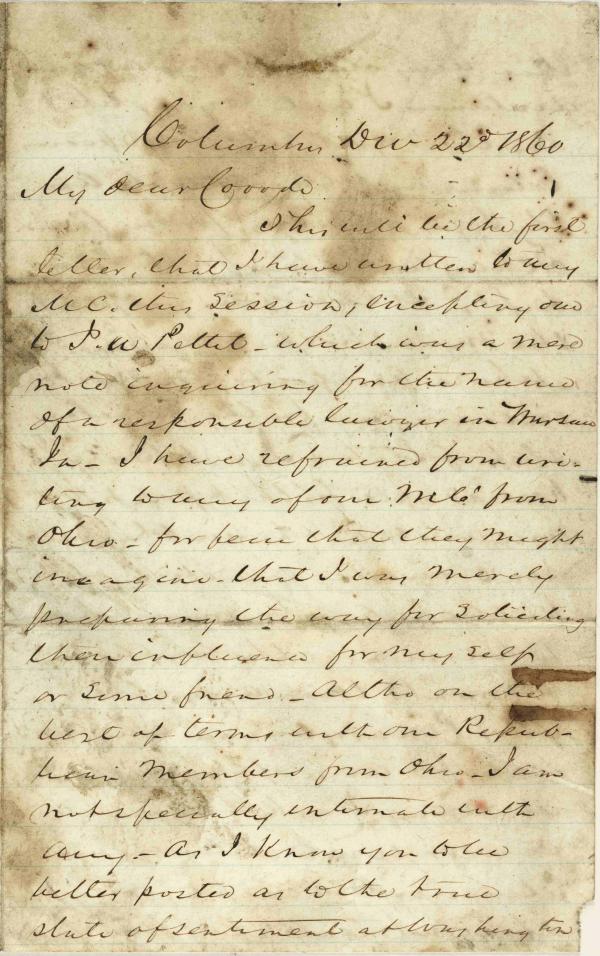 Columbus Dec 22d 1860
My dear Goode
This will be the first
letter, that I have written to any
M.C. this Session, excepting one
to P. W Pettit - which was a mere
note inquiring for the name
of a responsible lawyer in Warsaw
Ia - I have refrained from wri-
ting to any of our M.Cs from
Ohio - for fear that they might
imagine that I was merely
preparing the way for soliciting
their influence for my self
or some friend - Altho on the
best of terms with our Repub-
lican Members from Ohio - I am
not specially intimate with
any - As I know you to be
better posted as to the true
state of sentiment at Washington